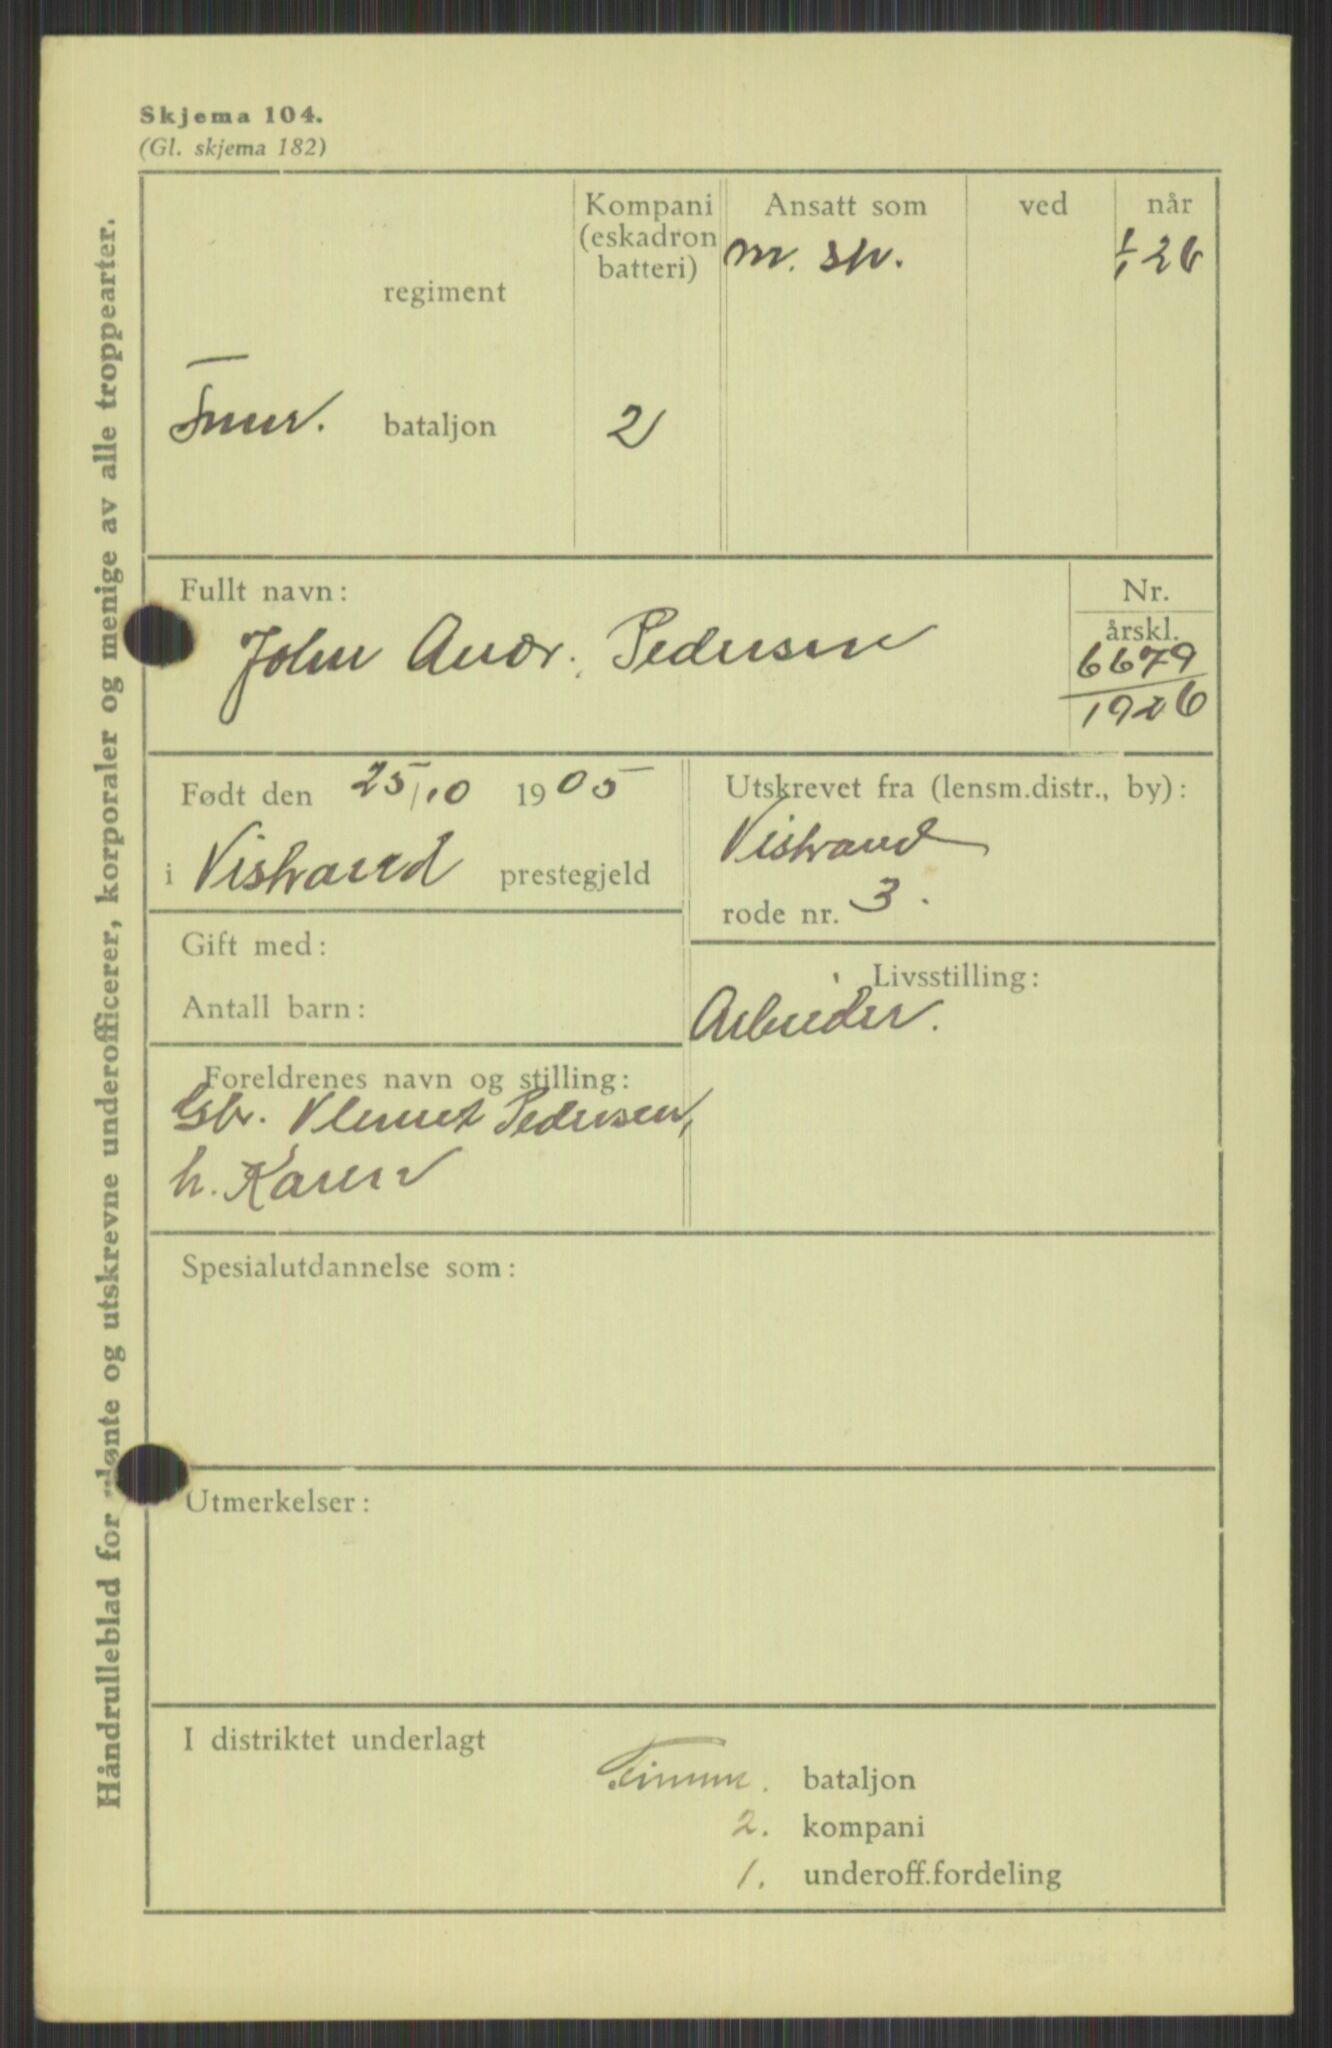 Skjema 104.
(Gl. skjema 182)
Håndrulleblad for lønte og utskrevne underofficerer, korporaler og menige av alle troppearter.
Kompani Ansatt som ved når
(eskadron
batteri)
m. sp. 1/1 26
regiment
bataljon 2
Fullt navn: Nr.
årskl.
John Andr. Pedersen 6679
1926
Født den 25/10 1905
i prestegjeld
Utskrevet fra (lensm.distr., by):
rode nr. 3.
Gift med:
Antall barn:
Livsstilling:
Arbeider.
Foreldrenes navn og stilling:
Gbr. Klemet Pedersen,
h. Karen
Spesialutdannelse som:
Utmerkelser:
I distriktet underlagt
Finnm. bataljon
2. kompani
1. underoff.fordeling